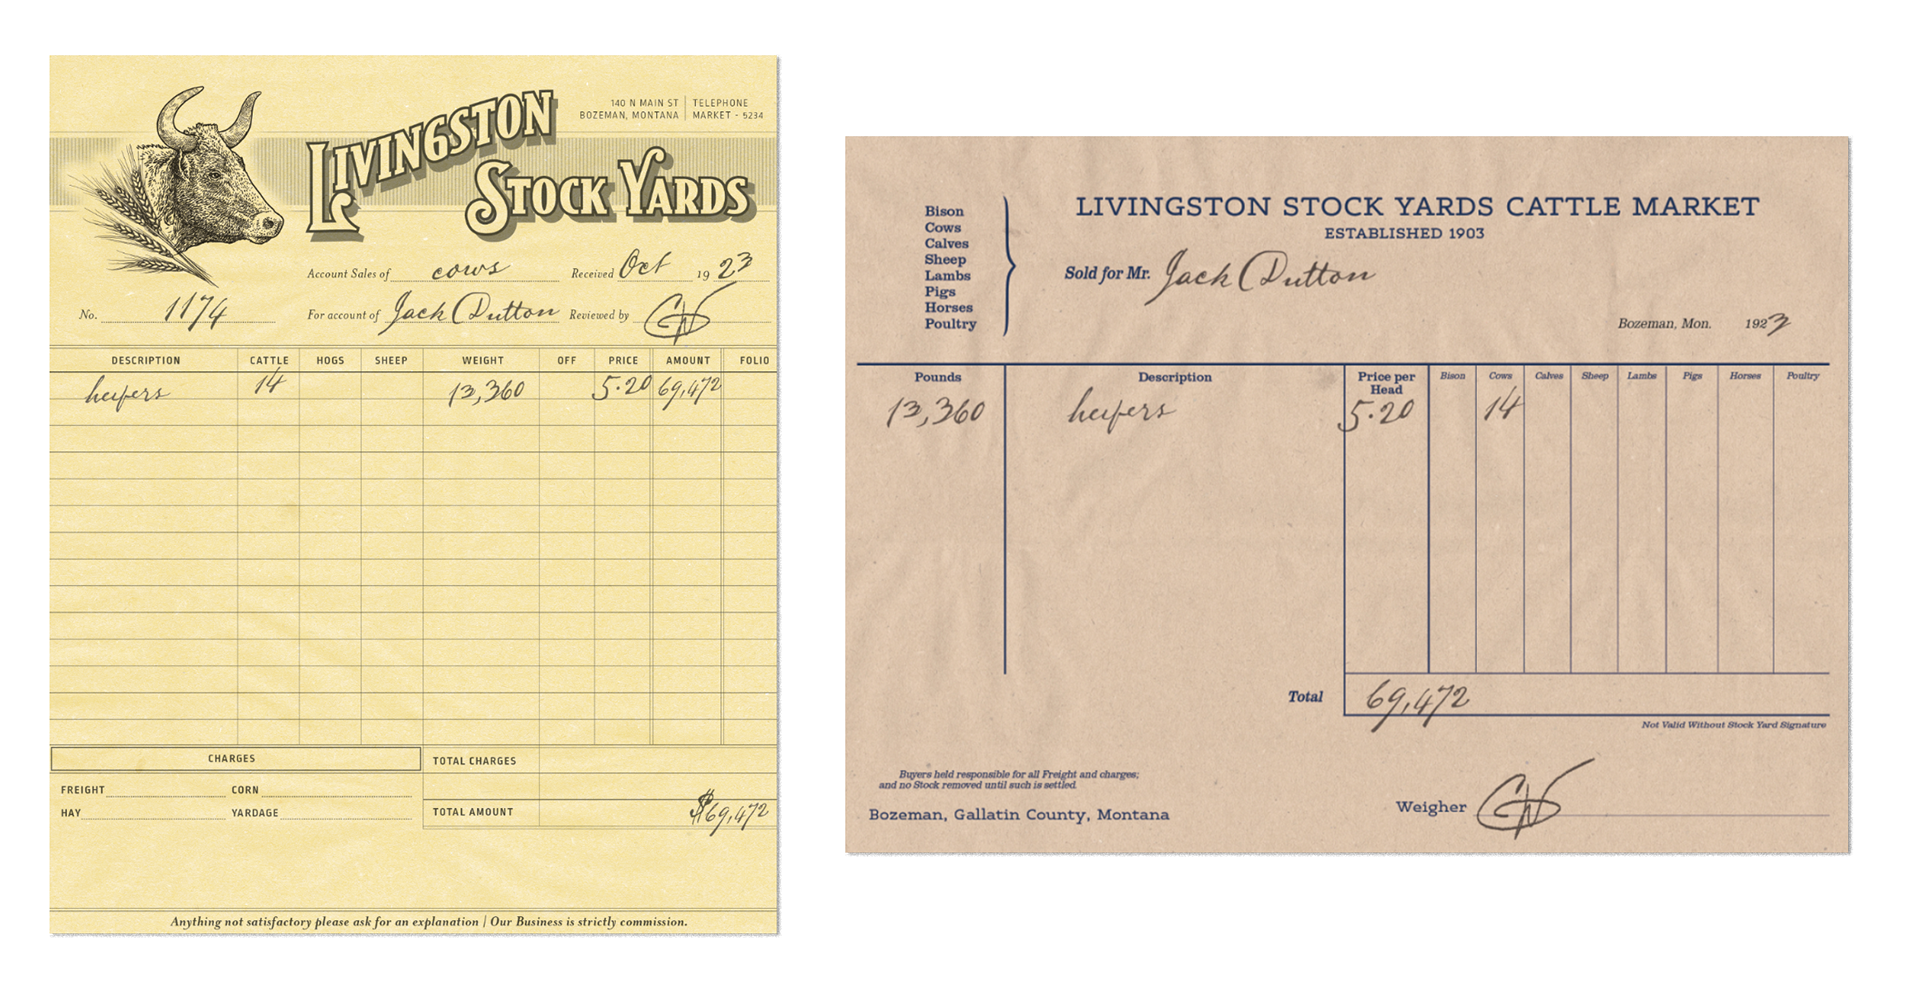 LIVINGSTON
STOCK YARDS
140 N MAIN ST | TELEPHONE
BOZEMAN, MONTANA | MARKET - 5234
Account Sales of cows Received Oct 19 23
No. 1174 For account of Jack Dutton Reviewed by CW
DESCRIPTION CATTLE HOGS SHEEP WEIGHT OFF PRICE AMOUNT FOLIO
heifers 14 13,360 5.20 69,472
CHARGES TOTAL CHARGES
FREIGHT CORN
HAY YARDAGE TOTAL AMOUNT $69,472
Anything not satisfactory please ask for an explanation | Our Business is strictly commission.
Bison
Cows
Calves
Sheep
Lambs
Pigs
Horses
Poultry
LIVINGSTON STOCK YARDS CATTLE MARKET
ESTABLISHED 1903
Sold for Mr. Jack Dutton
Bozeman, Mon. 1923
Pounds Description Price per Head Bison Cows Calves Sheep Lambs Pigs Horses Poultry
13,360 heifers 5.20 14
Total 69,472
Not Valid Without Stock Yard Signature
Buyers held responsible for all Freight and charges;
and no Stock removed until such is settled.
Bozeman, Gallatin County, Montana
Weigher CW